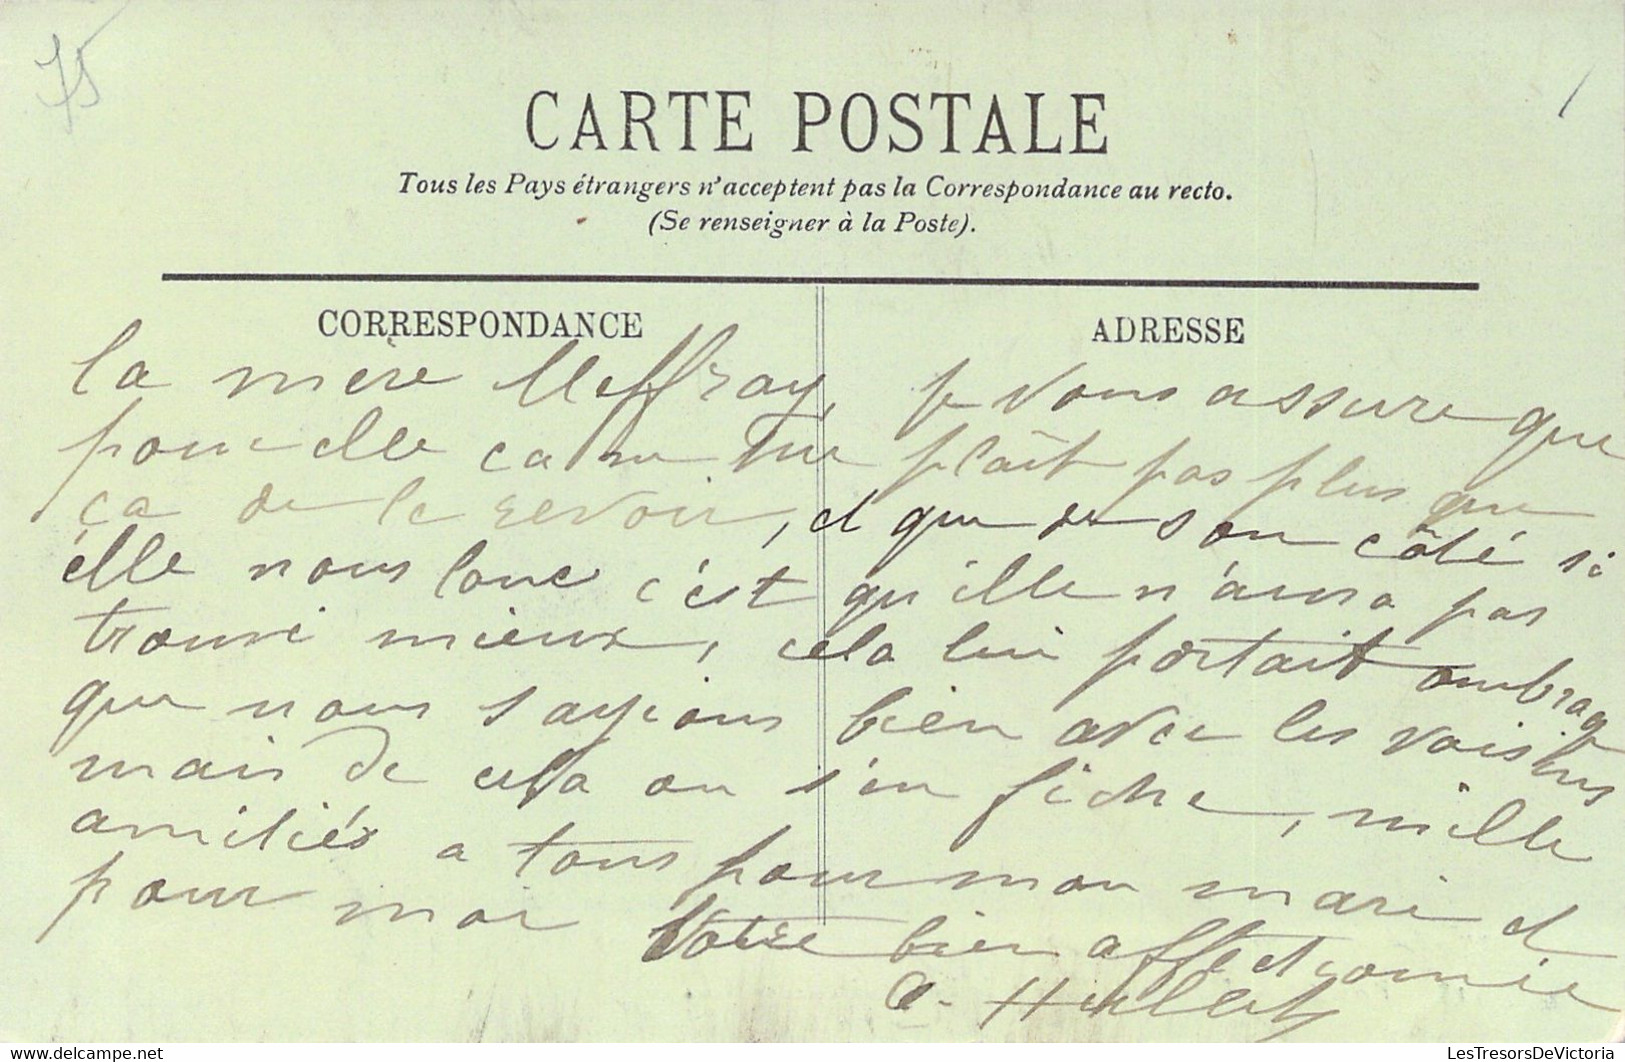 75
CARTE POSTALE
Tous les Pays étrangers n'acceptent pas la Correspondance au recto.
(Se renseigner à la Poste).
CORRESPONDANCE
ADRESSE
la mère Meffray, je vous assure que
pour elle ca ne me plaît pas plus que
ça de la revoir, et que de son côté si
elle nous loue c'est qu'elle n'aura pas
trouvé mieux, cela lui portait ombrage
que nous soyions bien avec les voisins
mais de cela on s'en fiche, mille
amitiés a tous pour mon mari et
pour moi Votre bien affet
A.
LesTresorsDeVictoria